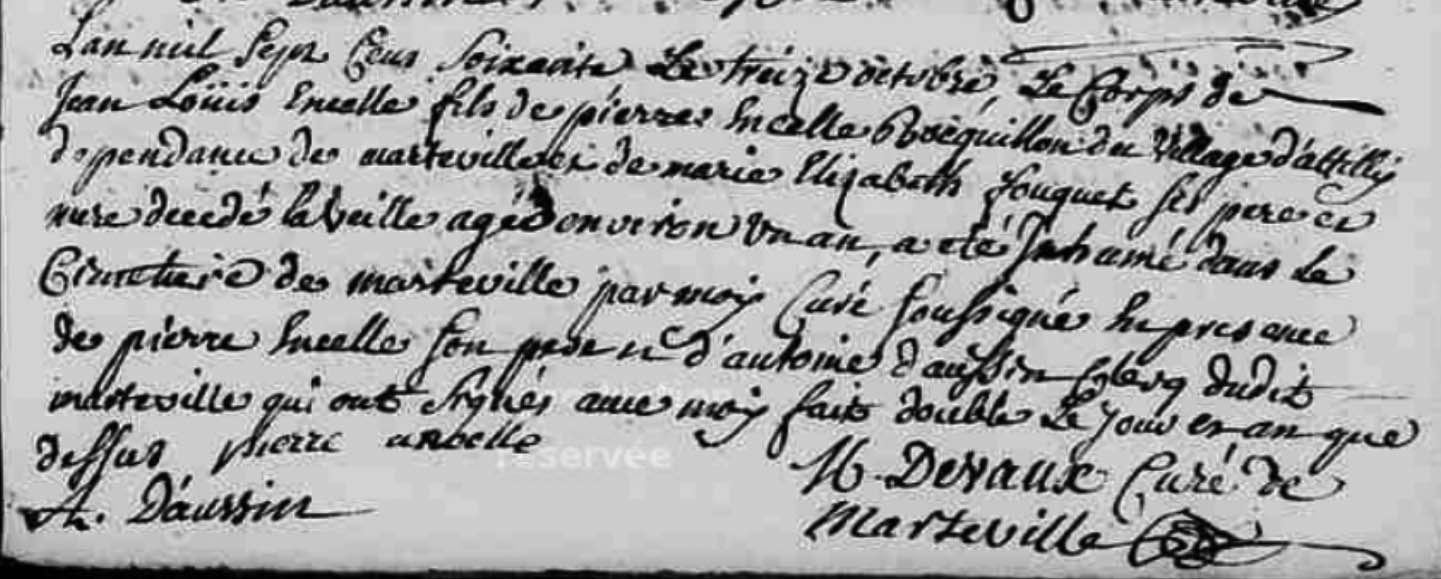 L'an mil sept cens soixante Le treize octobre, Le Corps de
Jean Loüis hucelle fils de pierre hucelle Bocquillon du village d'attilly
dependance de marteville et de marie Elizabeth fouquet ses pere et
mere decedé la veille agé d'environ un an, a eté Inhumé dans le
Cimetiere de marteville par moy Curé soussigné En presence
de pierre hucelle son pere et d'antoine d'aussin Clerq dudit
marteville qui ont signés avec moy fait double Le jour et an que
dessus pierre
A. Daussin
Devaux Curé de
Marteville